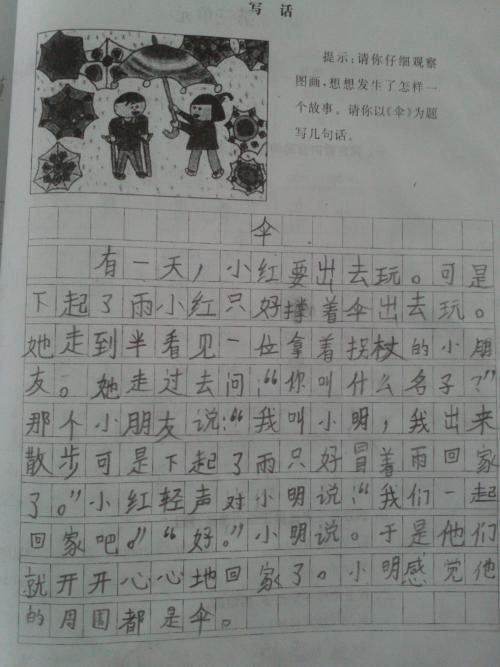 写 话
提示：请你仔细观察
图画，想想发生了怎样一
个故事。请你以《伞》为题
写几句话。
伞
有一天，小红要出去玩。可是
下起了雨小红只好撑着伞出去玩。
她走到半看见一位拿着拐杖的小朋
友。她走过去问：“你叫什么名子？”
那个小朋友说：“我叫小明，我出来
散步可是下起了雨只好冒着雨回家
了。”小红轻声对小明说：“我们一起
回家吧。”“好。”小明说。于是他们
就开开心心地回家了。小明感觉他
的周围都是伞。